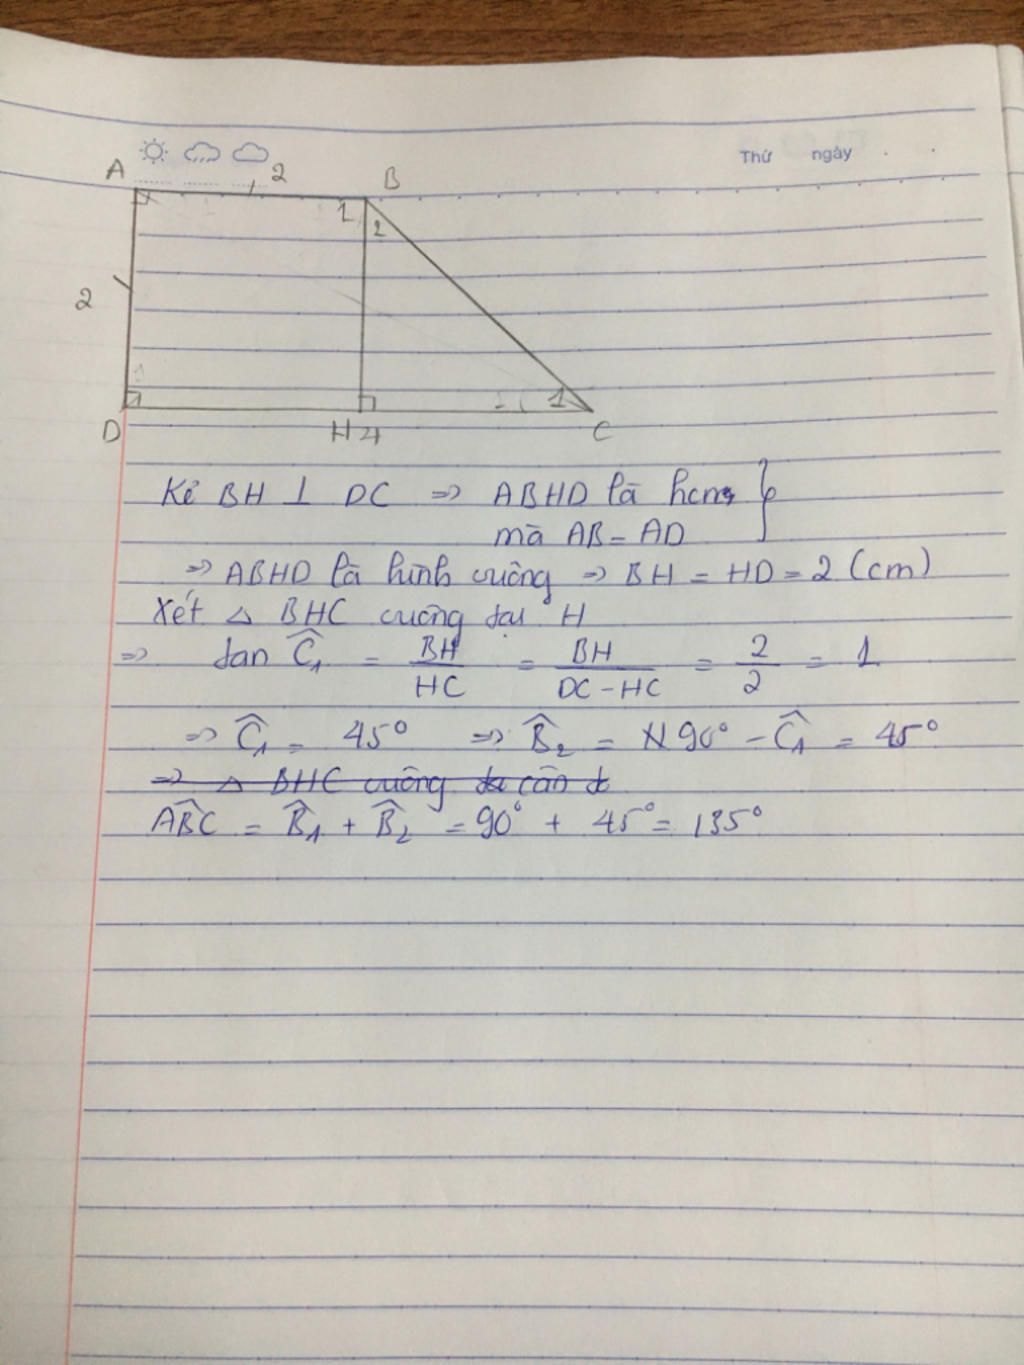 Thứ ngày
A 2 B
1 2
2
1
D H 4 C
Kẻ BH ⊥ DC => ABHD là hcn
mà AB = AD }
=> ABHD là hình vuông => BH = HD = 2 (cm)
Xét △ BHC vuông tại H
=> tan Ĉ₁ = BH/HC = BH/(DC - HC) = 2/2 = 1
=> Ĉ₁ = 45° => B̂₂ = 90° - Ĉ₁ = 45°
=> △ BHC vuông cân
ABC = B̂₁ + B̂₂ = 90° + 45° = 135°